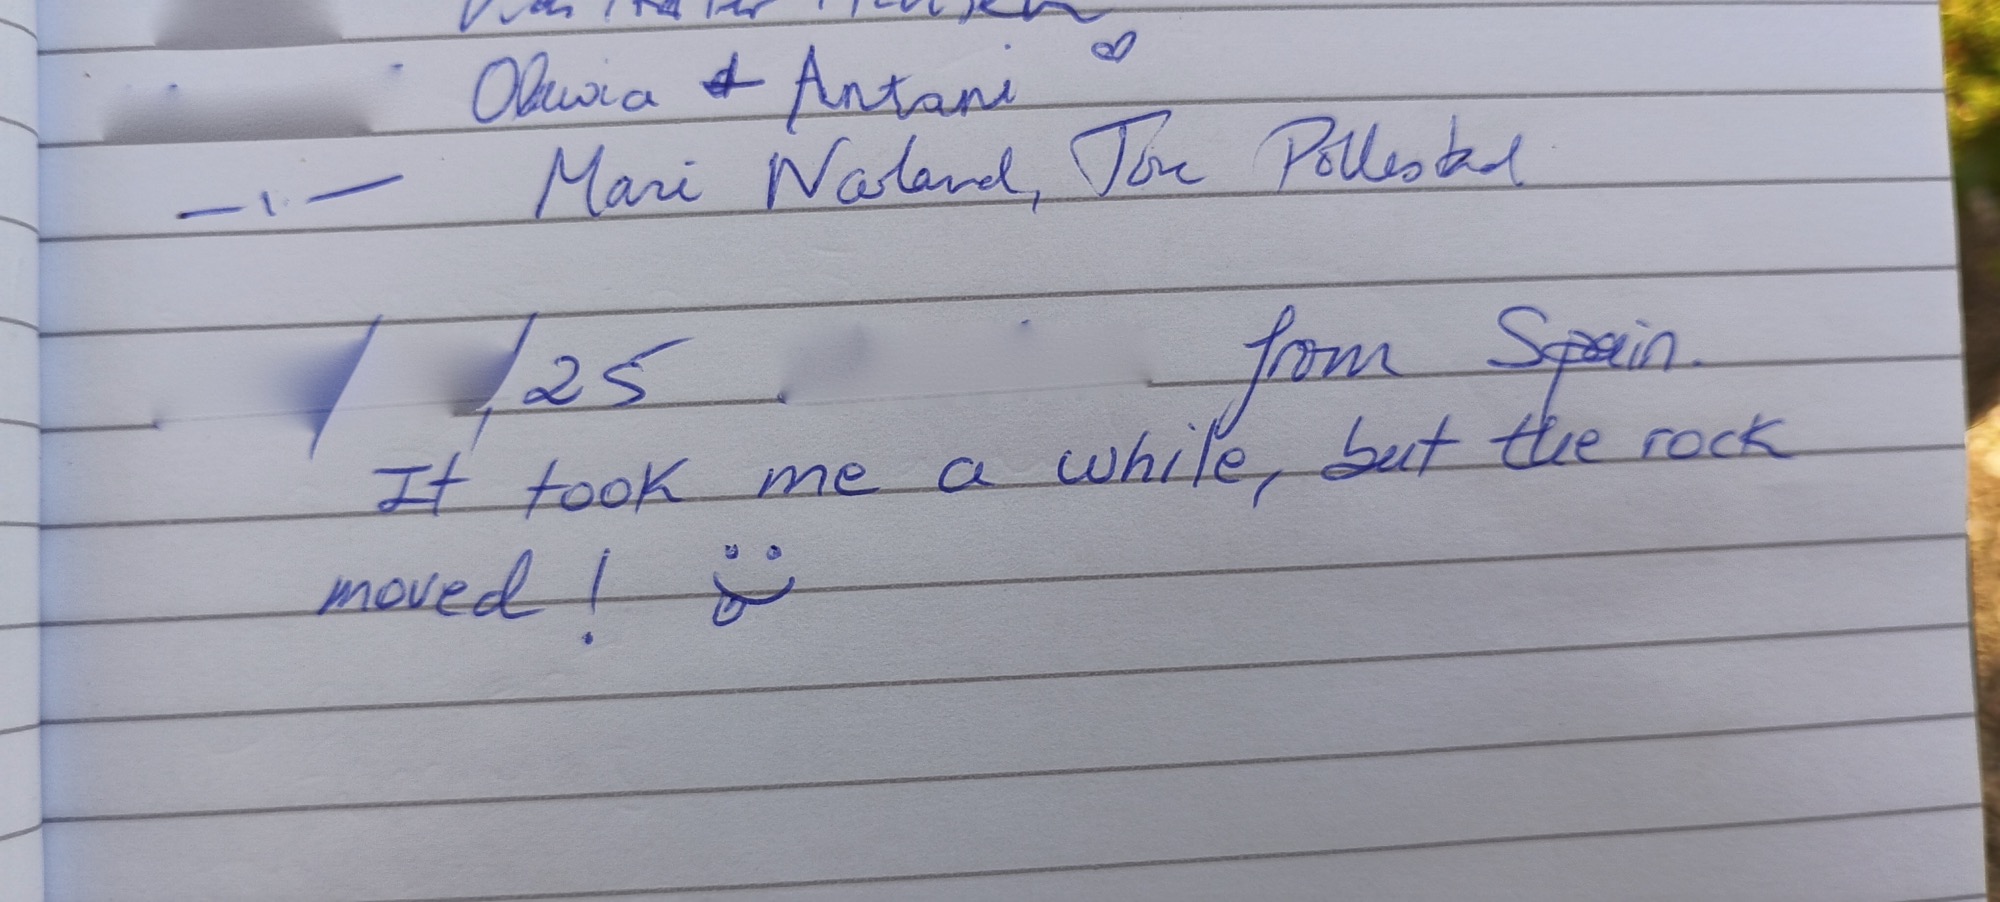 Oliwia & Antani ♡
—ı— Mari Narland, Tore Pollestad
/ /25 from Spain.
It took me a while, but the rock
moved!